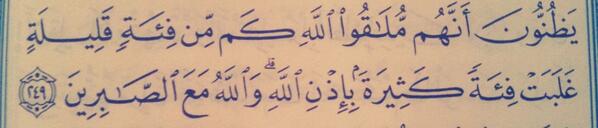 يَظُنُّونَ أَنَّهُم مُّلَـٰقُوا۟ ٱللَّهِ كَم مِّن فِئَةٍ قَلِيلَةٍ
غَلَبَتْ فِئَةً كَثِيرَةَۢ بِإِذْنِ ٱللَّهِ ۗ وَٱللَّهُ مَعَ ٱلصَّـٰبِرِينَ ٢٤٩